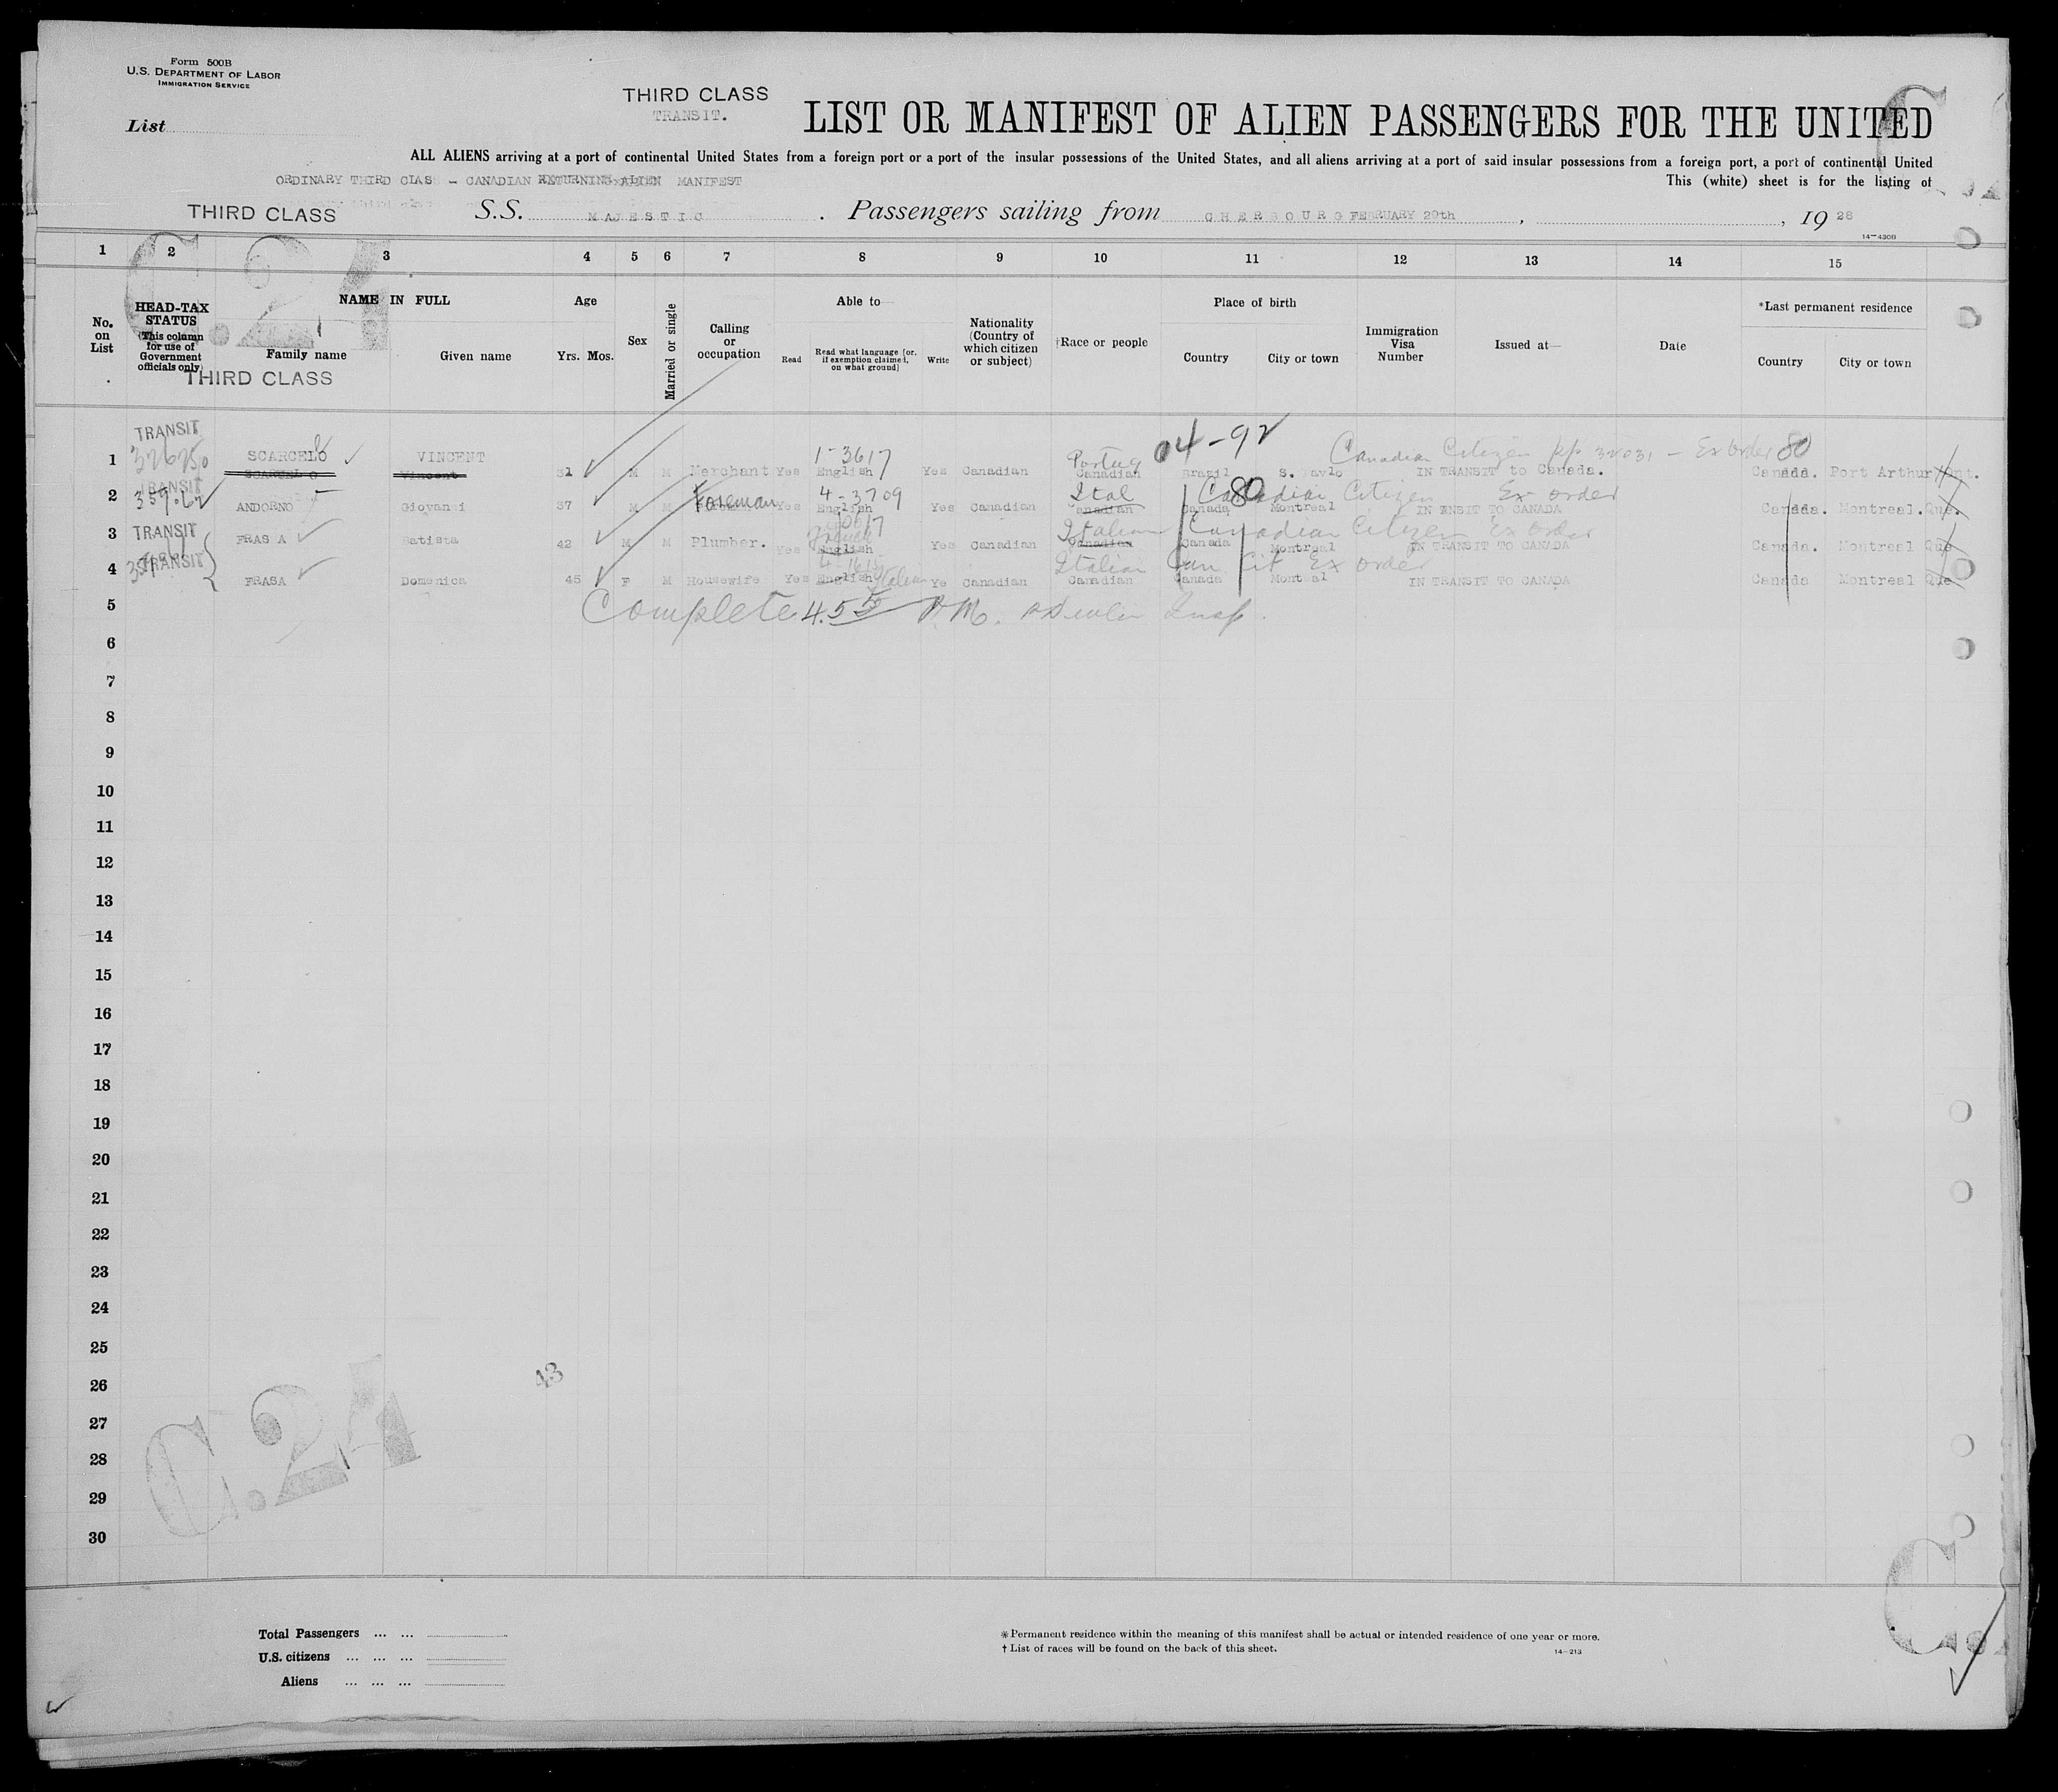 Form 500B
U.S. DEPARTMENT OF LABOR
IMMIGRATION SERVICE
List
THIRD CLASS
TRANSIT.
LIST OR MANIFEST OF ALIEN PASSENGERS FOR THE UNITED
ALL ALIENS arriving at a port of continental United States from a foreign port or a port of the insular possessions of the United States, and all aliens arriving at a port of said insular possessions from a foreign port, a port of continental United
ORDINARY THIRD CLAS - CANADIAN RETURNING ALIEN MANIFEST
This (white) sheet is for the listing of
THIRD CLASS S.S. MAJESTIC . Passengers sailing from CHERBOURG FEBRUARY 29th , , 19 28
14-430B
1 2 3 4 5 6 7 8 9 10 11 12 13 14 15
No. on List
HEAD-TAX STATUS (This column for use of Government officials only)
NAME IN FULL
Family name Given name
Age
Yrs. Mos.
Sex
Married or single
Calling or occupation
Able to—
Read Read what language [or, if exemption claimed, on what ground] Write
Nationality (Country of which citizen or subject)
†Race or people
Place of birth
Country City or town
Immigration Visa Number
Issued at—
Date
*Last permanent residence
Country City or town
THIRD CLASS
C.24
TRANSIT 04-92
1 SCARCELO VINCENT 1-3617 Portug Canadian Citizen pp 32031 - Ex order 80
SCARCELO Vincent 31 M M Merchant Yes English Yes Canadian Canadian Brazil S. IN TRANSIT to Canada. Canada. Port Arthur Ont.
TRANSIT
2 4-3709 Ital 80 Canadian Citizen Ex order
ANDORNO Giovanni 37 M M Foreman Yes English Yes Canadian Canada Montreal IN TRANSIT TO CANADA Canada. Montreal. Que.
3 TRANSIT Italian Canadian Citizen Ex order
FRASA Batista 42 M M Plumber. Yes French English Yes Canadian Canadian Canada Montreal IN TRANSIT TO CANADA Canada. Montreal Que
4 TRANSIT Italian Can Cit Ex order
FRASA Domenica 45 F M Housewife Yes English Italian Ye Canadian Canadian Canada Montreal IN TRANSIT TO CANADA Canada Montreal Que
5 Complete 4.55 P.M. Insp.
6
7
8
9
10
11
12
13
14
15
16
17
18
19
20
21
22
23
24
25
26
27
28
29
30
43
C.24
Total Passengers ... ...
U.S. citizens ... ... ...
Aliens ... ... ...
*Permanent residence within the meaning of this manifest shall be actual or intended residence of one year or more.
†List of races will be found on the back of this sheet.
14-213